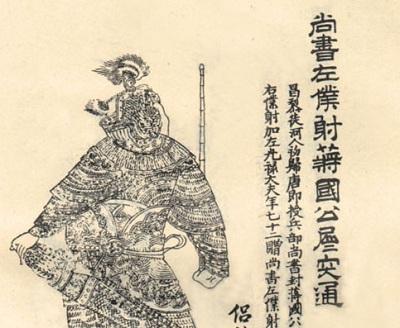 尚書左僕射蔣國公屈突通
昌黎徒河人初歸唐即授兵部尚書封蔣國公
右僕射加左光祿大夫年七十二贈尚書左僕射
侶